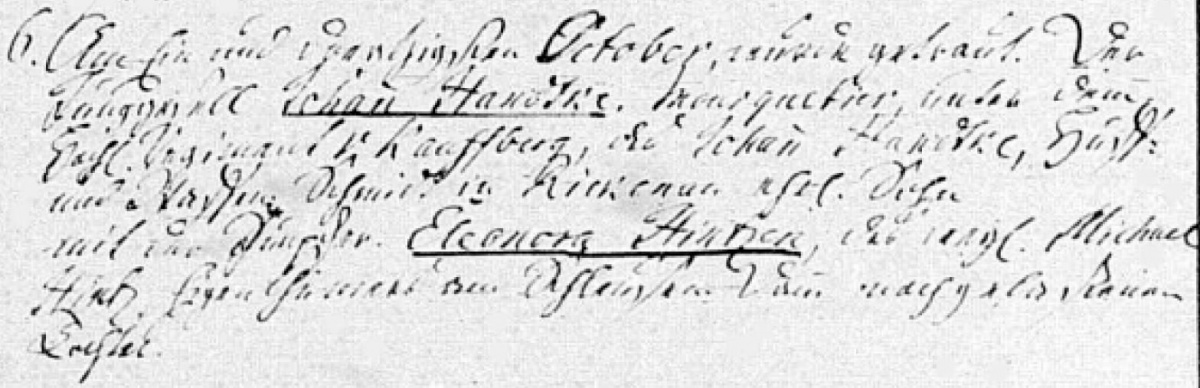 6. Am Ein und zwantzigsten October, wurde getraut. Der
Junggesell Johann Handtke. Mousquetier, unter dem
Hochl. Regiment v. Kauffberg, des Johann Handtke, Huff-
und Waffen Schmid in Rickenau ehel. Sohn
mit der Jungfer. Eleonora Hintzen, des weyl. Michael
Hintz, Eigenthümers am Damm nachgelassenen
Tochter.